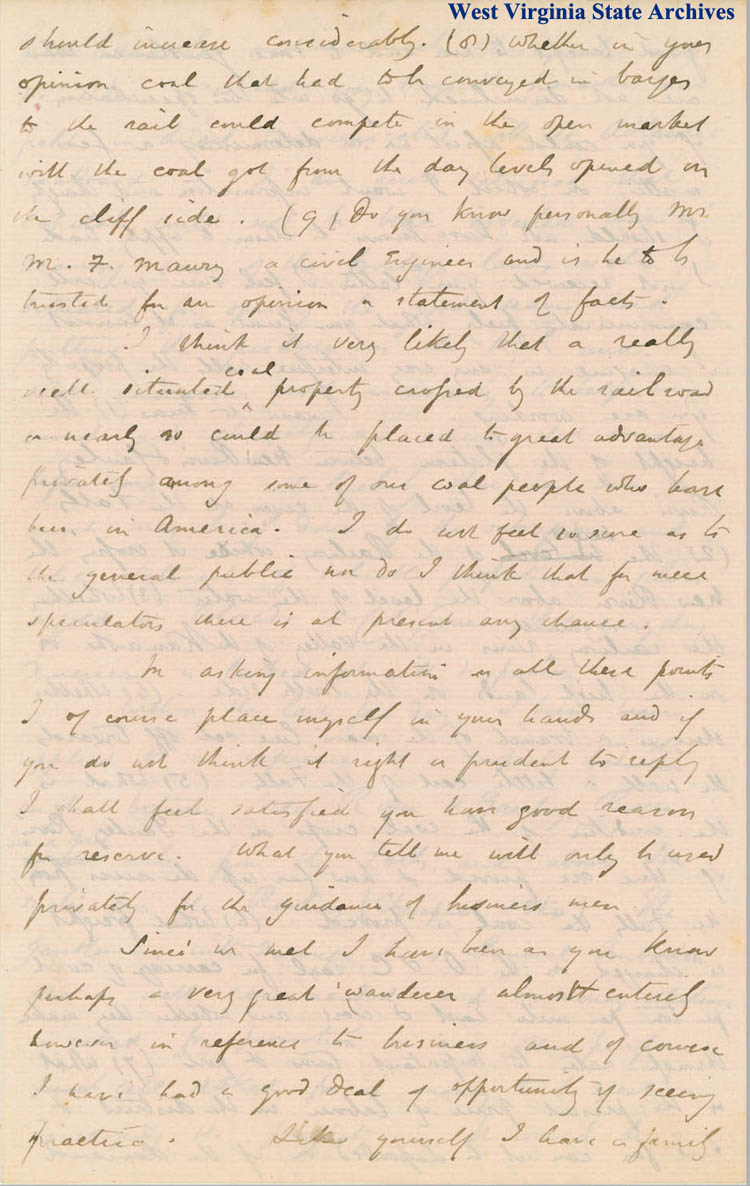 West Virginia State Archives
should increase considerably. (8) whether in your
opinion coal that had to be conveyed in barges
to the rail could compete in the open market
with the coal got from the day levels opened on
the cliff side. (9) Do you know personally Mr
M. F. Maury a civil Engineer and is he to be
trusted for an opinion or statement of facts.
I think it very likely that a really
well situated coal property crossed by the rail road
or nearly so could be placed to great advantage
privately among some of our coal people who have
been in America. I do not feel so sure as to
the general public nor do I think that for mere
speculators there is at present any chance.
In asking information on all these points
I of course place myself in your hands and if
you do not think it right or prudent to reply
I shall feel satisfied you have good reason
for reserve. What you tell me will only be used
privately for the guidance of business men.
Since we met I have been as you know
perhaps a very great wanderer almost entirely
however in reference to business and of course
I have had a good deal of opportunity of seeing
practice. Like yourself I have a family